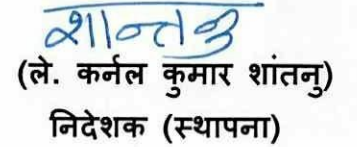 शान्तनु
(ले. कर्नल कुमार शांतनु)
निदेशक (स्थापना)